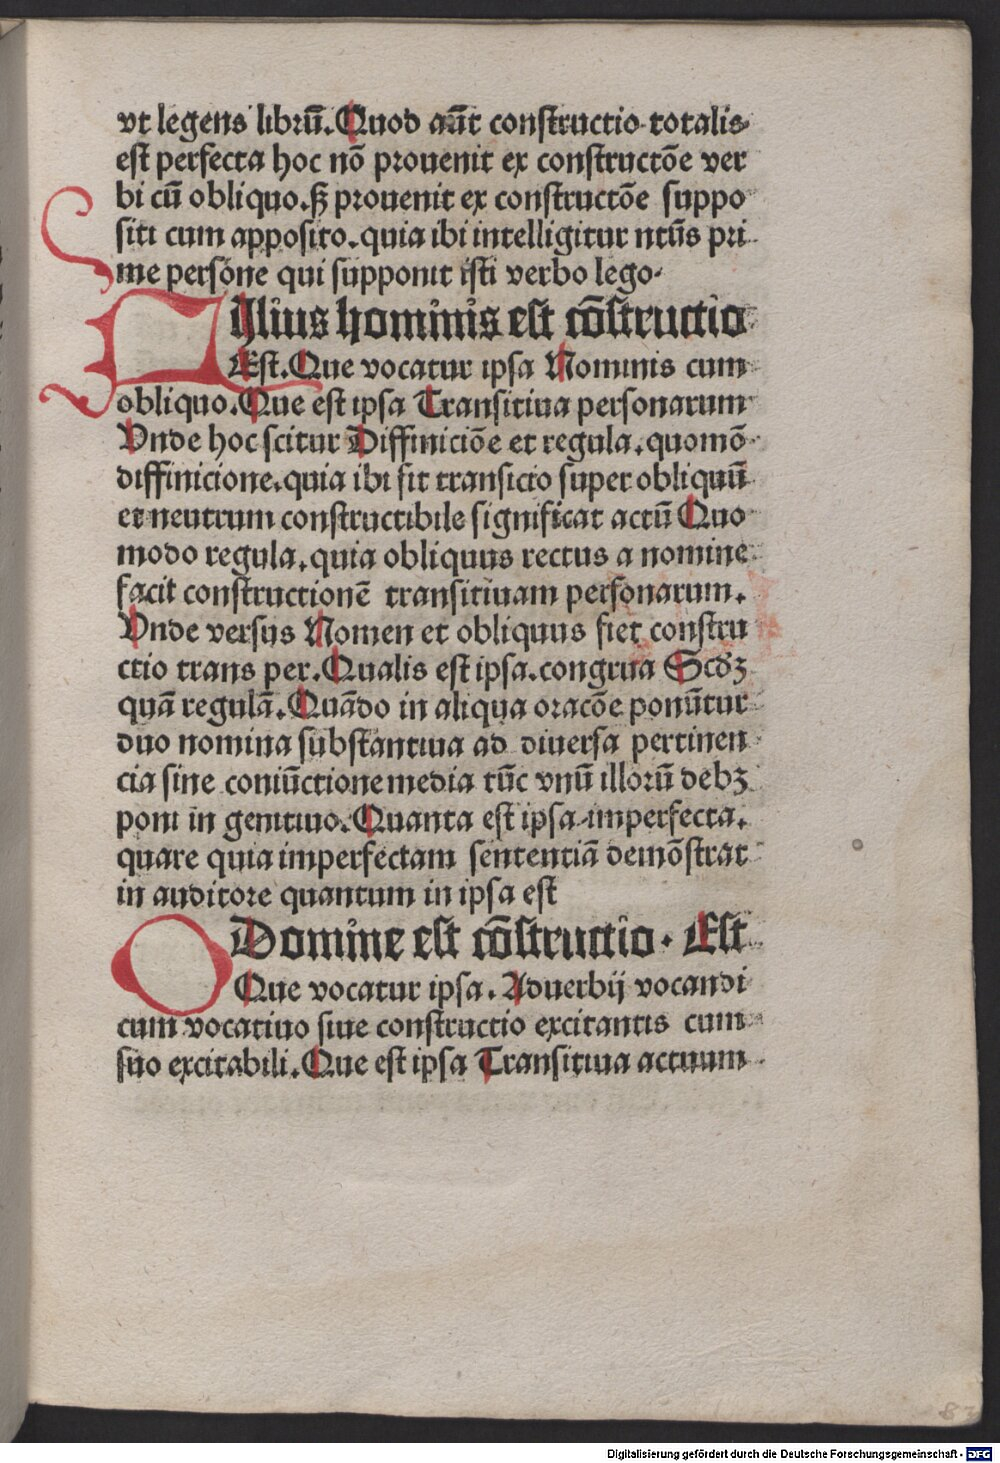 vt legens libꝛū. Quod aūt constructio totalis
est perfecta hoc nō prouenit ex constructōe ver
bi cū obliquo. sꝫ prouenit ex constructōe suppo
siti cum apposito. quia ibi intelligitur ntūs pri
me persone qui supponit isti verbo lego
Filius hominis est cōstructio
Est. Que vocatur ipsa Nominis cum
obliquo. Que est ipsa Transitiua personarum
Vnde hoc scitur Diffiniciōe et regula. quomō
diffinicione. quia ibi fit transicio super obliquū
et neutrum constructibile significat actū Quo
modo regula. quia obliquus rectus a nomine
facit constructionē transitiuam personarum.
Vnde versus Nomen et obliquus fiet constru
ctio trans per. Qualis est ipsa. congrua Scdꝫ
quā regulā. Quādo in aliqua oracōe ponūtur
duo nomina substantiua ad diuersa pertinen
cia sine coniūctione media tūc vnū illorū debꝫ
poni in genitiuo. Quanta est ipsa imperfecta.
quare quia imperfectam sententiā demōstrat
in auditore quantum in ipsa est
O Domine est cōstructio. Est
Que vocatur ipsa. Aduerbij vocandi
cum vocatiuo siue constructio excitantis cum
suo excitabili. Que est ipsa Transitiua actuum
Digitalisierung gefördert durch die Deutsche Forschungsgemeinschaft - DFG